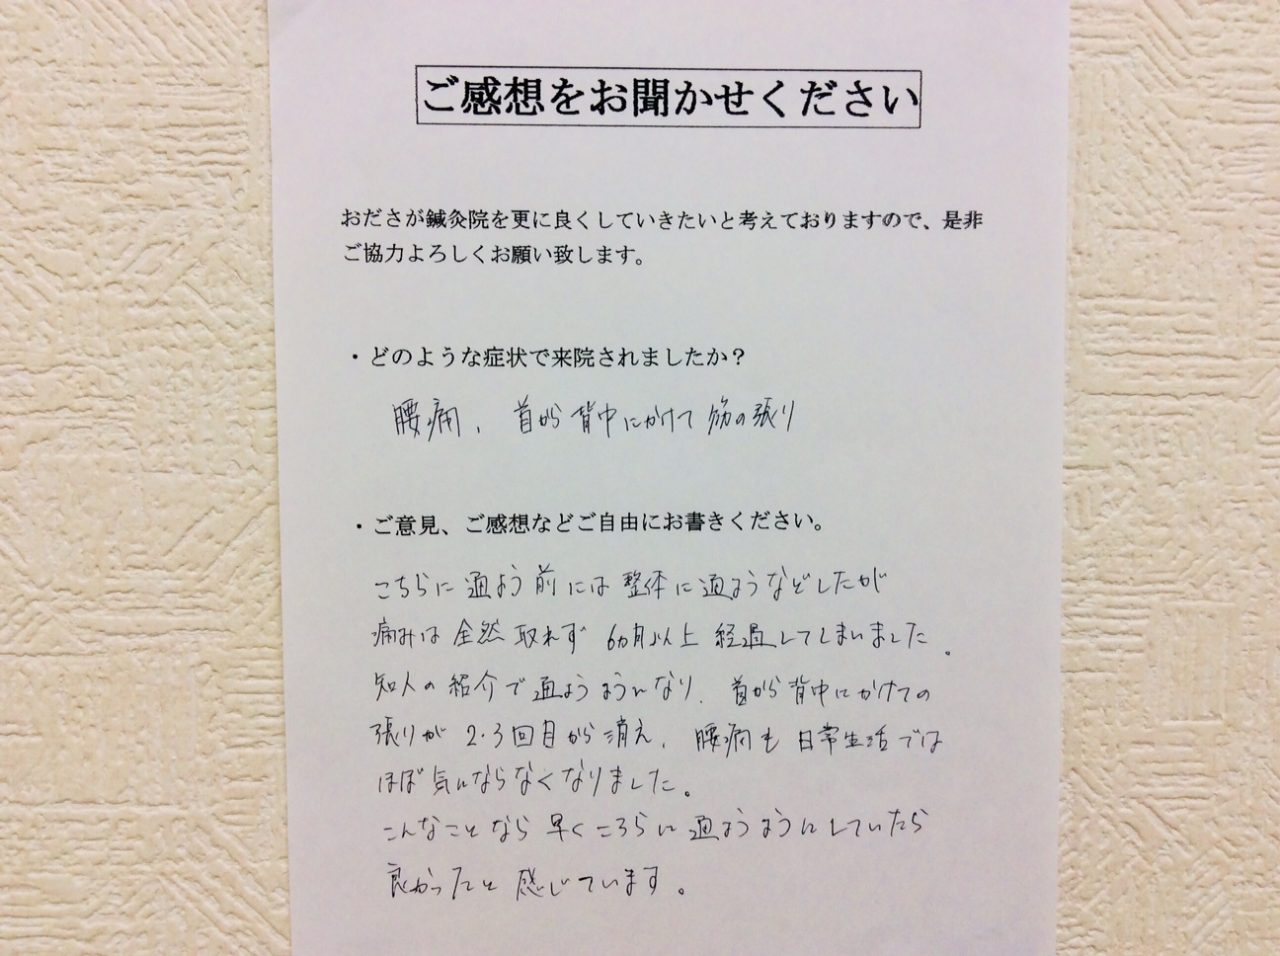 ご感想をお聞かせください
おださが鍼灸院を更に良くしていきたいと考えておりますので、是非
ご協力よろしくお願い致します。
・どのような症状で来院されましたか？
腰痛、首から背中にかけて筋の張り
・ご意見、ご感想などご自由にお書きください。
こちらに通よう前には整体に通ようなどしたが
痛みは全然取れず6ヵ月以上経過してしまいました。
知人の紹介で通ようようになり、首から背中にかけての
張りが2・3回目から消え、腰痛も日常生活では
ほぼ気にならなくなりました。
こんなことなら早くこちらに通ようようにしていたら
良かったと感じています。